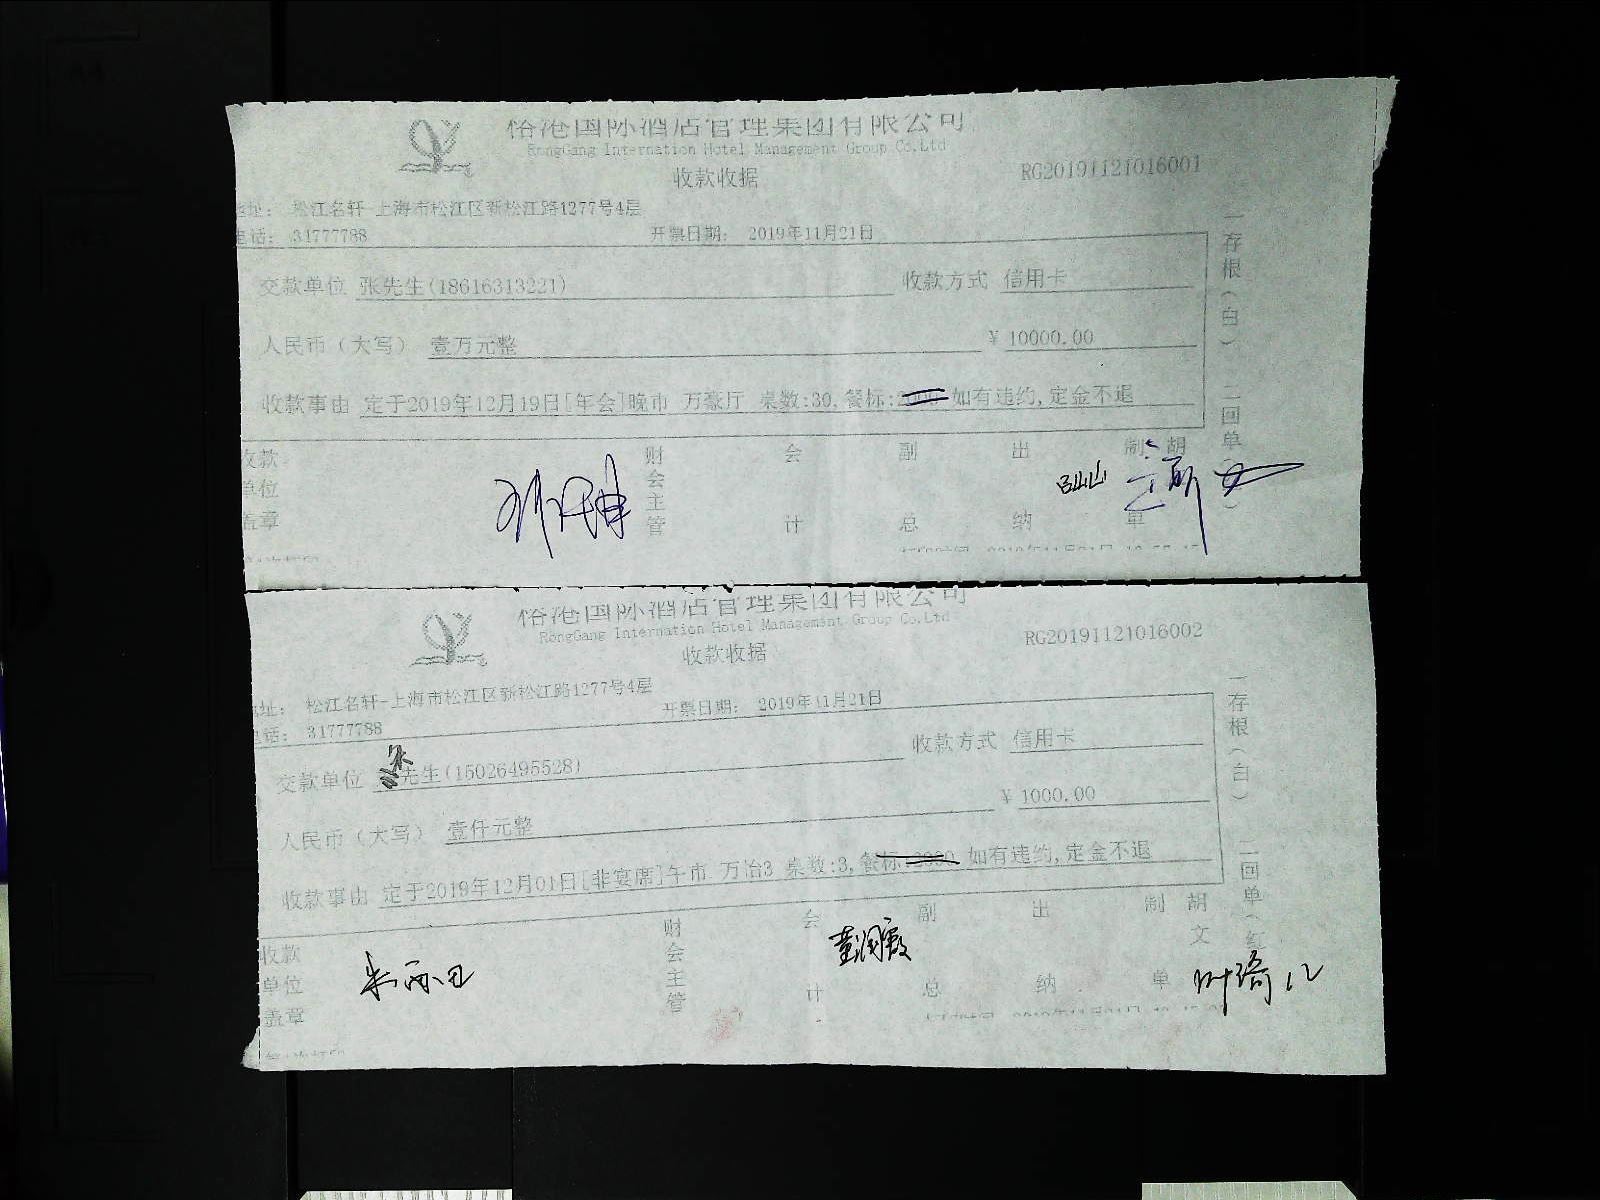 港国际酒店管理集团有限公司
RongGang Internation Hotel Management Group Co.Ltd
收款收据
RG20191121016001
地址: 松江名轩-上海市松江区新松江路1277号4层
电话: 31777788 开票日期: 2019年11月21日
交款单位 张先生(18616313221) 收款方式 信用卡
人民币(大写) 壹万元整 ¥ 10000.00
收款事由 定于2019年12月19日[年会]晚市 万豪厅 桌数:30, 餐标: 如有违约, 定金不退
收款单位盖章
财会主管
会计
副总
出纳
制单 胡
一存根(白) 二回单(
港国际酒店管理集团有限公司
RongGang Internation Hotel Management Group Co.Ltd
收款收据
RG20191121016002
地址: 松江名轩-上海市松江区新松江路1277号4层
电话: 31777788 开票日期: 2019年11月21日
交款单位 先生(15026495528) 收款方式 信用卡
人民币(大写) 壹仟元整 ¥ 1000.00
收款事由 定于2019年12月01日[非宴席]午市 万冶3 桌数:3, 餐标: 如有违约, 定金不退
收款单位盖章
财会主管
会计
董润霞
副总
出纳
制单 胡文
一存根(白) 二回单(红